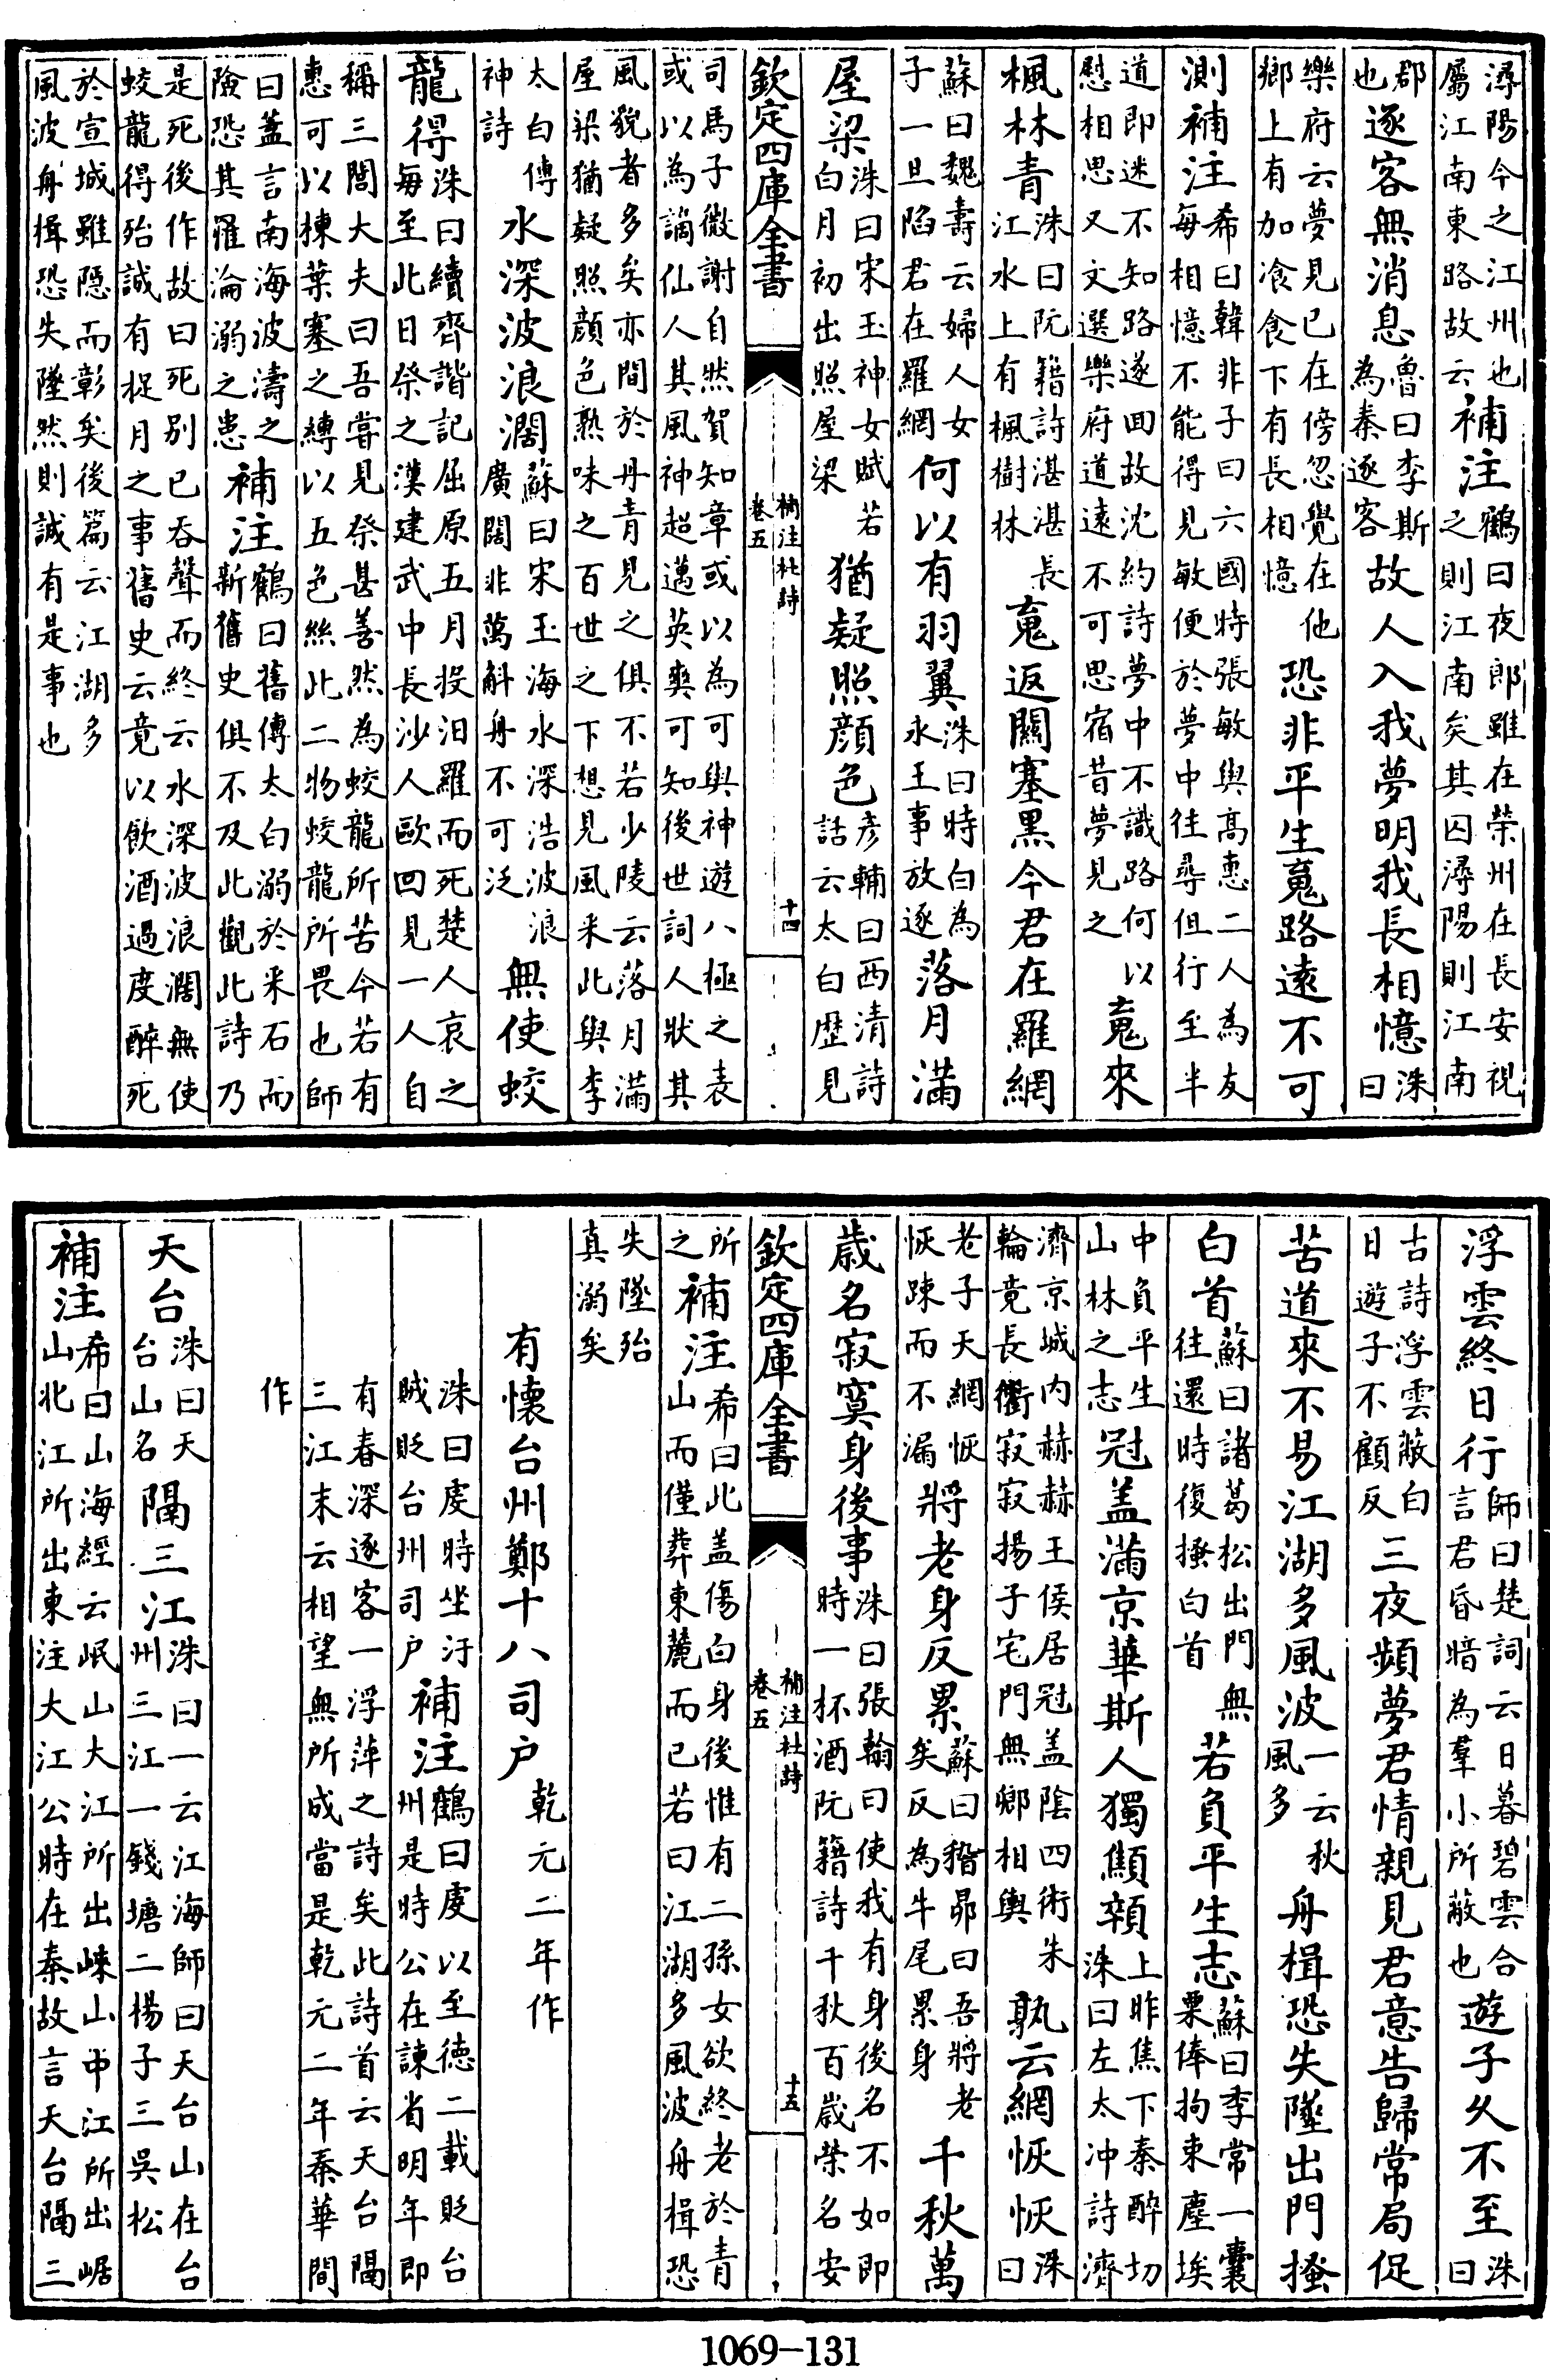 潯陽今之江州也補注鶴曰夜郎雖在榮州在長安視
屬江南東路故云補注之則江南矣其囚潯陽則江南
郡也逐客無消息魯曰李斯為秦逐客故人入我夢明我長相憶洙曰
樂府云夢見已在傍忽覺在他鄉上有加飡食下有長相憶恐非平生䰟路遠不可
測補注希曰韓非子曰六國時張敏與高惠二人為友每相憶不能得見敏便於夢中往尋但行至半
道即迷不知路遂回故沈約詩夢中不識路何以慰相思又文選樂府道遠不可思宿昔夢見之䰟來
楓林青洙曰阮籍詩湛湛長江水上有楓樹林䰟返關塞黑今君在羅網
蘇曰魏壽云婦人女子一旦陷君在羅網何以有羽翼洙曰時白為永王事放逐落月滿
屋梁洙曰宋玉神女賦若白月初出照屋梁猶疑照顔色彥輔曰西清詩話云太白歴見
欽定四庫全書 補注杜詩 卷五 十四
司馬子微謝自然賀知章或以為可與神遊八極之表或以為謫仙人其風神超邁英爽可知後世詞人狀其
風貌者多矣亦間於丹青見之俱不若少陵云落月滿屋梁猶疑照顔色熟味之百世之下想見風采此與李
太白傳神詩水深波浪濶蘇曰宋玉海水深浩波浪廣闊非萬斛舟不可泛無使蛟
龍得洙曰續齊諧記屈原五月投汨羅而死楚人哀之每至此日祭之漢建武中長沙人歐回見一人自
稱三閭大夫曰吾嘗見祭甚善然為蛟龍所苦今若有惠可以楝葉塞之縳以五色絲此二物蛟龍所畏也師
曰葢言南海波濤之險恐其罹淪溺之患補注鶴曰舊傳太白溺於采石而新舊史俱不及此觀此詩乃
是死後作故曰死别已吞聲而終云水深波浪濶無使蛟龍得殆誠有捉月之事舊史云竟以飲酒過度醉死
於宣城雖隱而彰矣後篇云江湖多風波舟楫恐失墜然則誠有是事也
浮雲終日行師曰楚詞云日暮碧雲合言君昏暗為羣小所蔽也遊子乆不至洙曰
古詩浮雲蔽白日遊子不顧反三夜頻夢君情親見君意告歸常局促
苦道來不易江湖多風波一云秋風多舟楫恐失墜出門搔
白首蘇曰諸葛松出門無往還時復搔白首若負平生志蘇曰李常一囊粟俸拘束塵埃
中負平生山林之志冠盖滿京華斯人獨顦顇上昨焦下秦醉切洙曰左太冲詩濟
濟京城内赫赫王侯居冠盖陰四術朱輪竟長衢寂寂揚子宅門無鄉相輿孰云網恢恢洙曰
老子天網恢恢踈而不漏將老身反累蘇曰稽昴曰吾將老矣反為牛尾累身千秋萬
歳名寂寞身後事洙曰張翰曰使我有身後名不如即時一杯酒阮籍詩千秋百歳榮名安
欽定四庫全書 補注杜詩 卷五 十五
所之補注希曰此盖傷白身後惟有二孫女欲終老於青山而僅葬東麓而已若曰江湖多風波舟楫恐
失墜殆真溺矣
有懐台州鄭十八司户乾元二年作
洙曰䖍時坐汙賊貶台州司户補注鶴曰䖍以至徳二載貶台州是時公在諫省明年即
有春深逐客一浮萍之詩矣此詩首云天台隔三江末云相望無所成當是乾元二年秦華間
作
天台洙曰天台山名隔三江洙曰一云江海師曰天台山在台州三江一錢塘二楊子三吳松
補注希曰山海經云岷山大江所出崍山中江所出崌山北江所出東注大江公時在秦故言天台隔三
1069-131